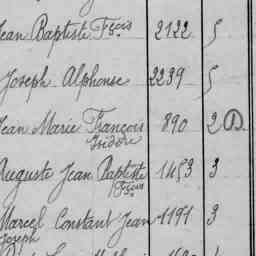 Jean Baptiste Fçois 2122 5
Joseph Alphonse 2239 5
Jean Marie François 890 2 D.
Isidore
Auguste Jean Baptiste 1453 3
Fçois
Marcel Constant Jean 1191 3
Joseph